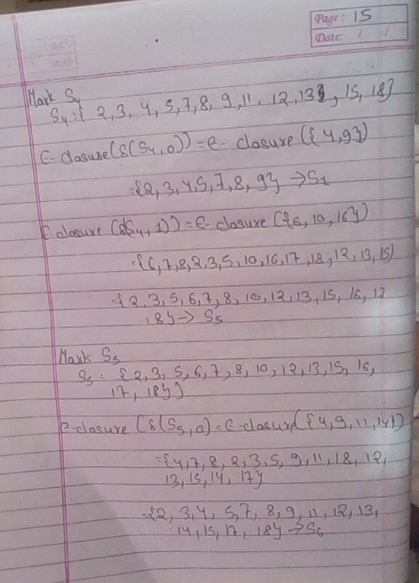 Page: 15
Date: / /
Mark S4
S4 = { 2, 3, 4, 5, 7, 8, 9, 11, 12, 13, 15, 18}
ε-closure(δ(S4, 0)) = e-closure({4, 9})
= {2, 3, 4, 5, 7, 8, 9} → S2
ε-closure (δ(S4, 1)) = e-closure ({6, 10, 16})
= {6, 7, 8, 2, 3, 5, 10, 16, 17, 18, 12, 13, 15}
= {2, 3, 5, 6, 7, 8, 10, 12, 13, 15, 16, 17
, 18} → S5
Mark S5
S5 = {2, 3, 5, 6, 7, 8, 10, 12, 13, 15, 16,
17, 18}
e-closure (δ(S5, 0) = e-closure({4, 9, 11, 14})
= {4, 7, 8, 2, 3, 5, 9, 11, 18, 12,
13, 15, 14, 17}
= {2, 3, 4, 5, 7, 8, 9, 11, 12, 13,
14, 15, 17, 18} → S6